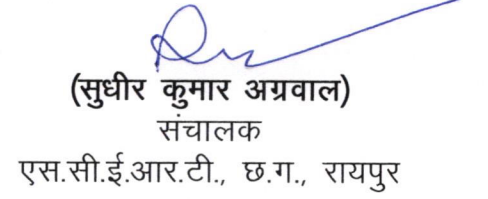 (सुधीर कुमार अग्रवाल)
संचालक
एस.सी.ई.आर.टी., छ.ग., रायपुर